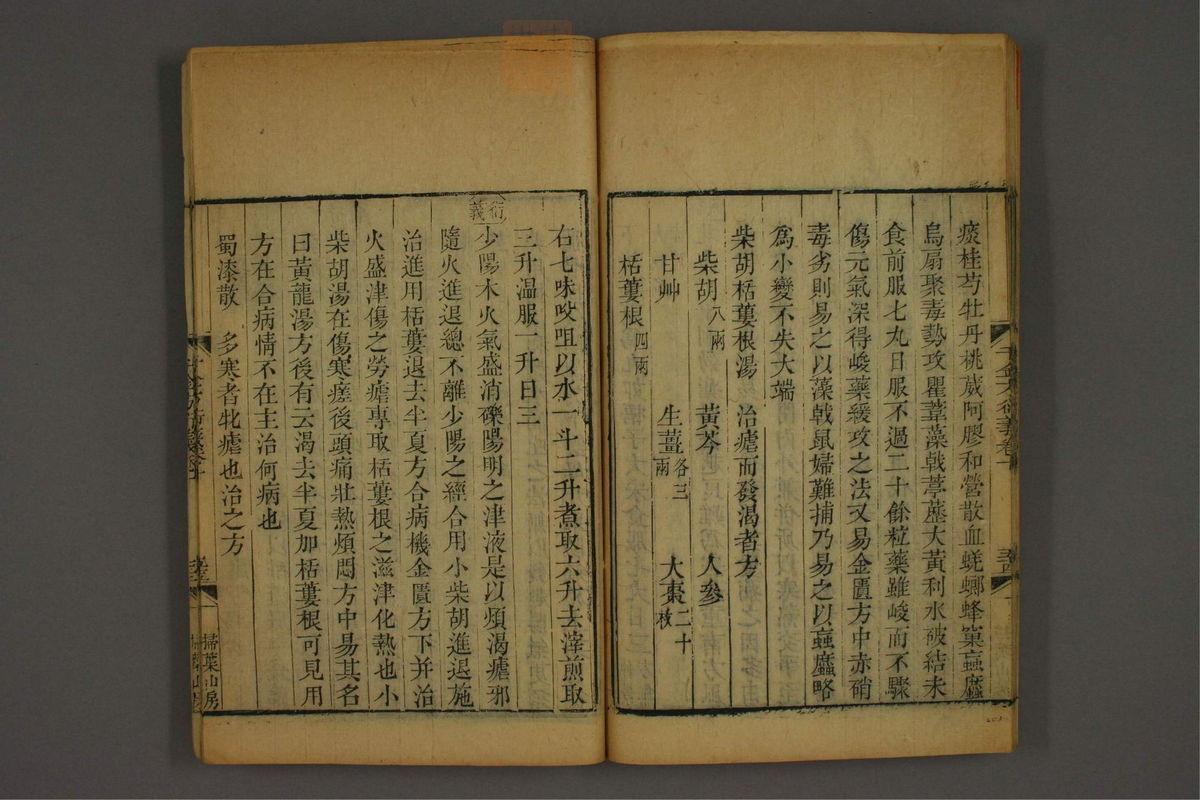 痰桂芍牡丹桃葳阿膠和營散血蜣螂蜂窠䗪䗪
烏扇聚毒勢攻瞿葦藻戟葶藶大黃利水破結未
食前服七丸日服不過二十餘粒藥雖峻而不驟
傷元氣深得峻藥緩攻之法又易金匱方中赤硝
毒劣則易之以藻戟鼠婦難捕乃易之以䗪䗪略
爲小變不失大端
柴胡栝蔞根湯 治瘧而發渴者方
柴胡八兩 黃芩 人參
甘艸 生薑各三兩 大棗二十枚
栝蔞根四兩
右七味㕮咀以水一斗二升煮取六升去滓煎取
三升温服一升日三
衍義
少陽木火氣盛消礫陽明之津液是以煩渴瘧邪
隨火進退總不離少陽之經合用小柴胡進退施
治進用栝蔞退去半夏方合病機金匱方下并治
火盛津傷之勞瘧專取栝蔞根之滋津化熱也小
柴胡湯在傷寒瘥後頭痛壯熱煩悶方中易其名
曰黃龍湯方後有云渴去半夏加栝蔞根可見用
方在合病情不在主治何病也
蜀漆散 多寒者牝瘧也治之方
掃葉山房